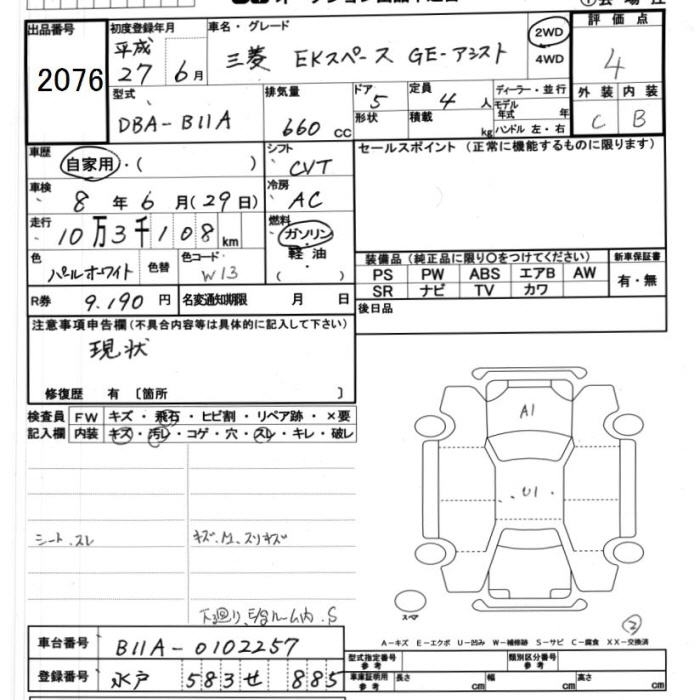 出品番号
2076
初度登録年月
平成
27 6月
車名・グレード
三菱 EKスペース GE-アシスト
2WD
4WD
評価点
4
外装 内装
C B
型式
DBA-B11A
排気量
660 cc
ドア
5
形状
定員
4人
積載
kg
ディーラー・並行
モデル年式 年
ハンドル 左・右
車歴
自家用・( )
シフト
CVT
セールスポイント(正常に機能するものに限ります)
車検
8年6月(29日)
冷房
AC
走行
10万3千108km
燃料
ガソリン・
軽油
( )
色
パールホワイト
色替
色コード
W13
装備品(純正品に限り○をつけてください)
PS PW ABS エアB AW
SR ナビ TV カワ
新車保証書
有・無
R券 9,190円
名変通知期限 月 日
後日品
注意事項申告欄(不具合内容等は具体的に記入して下さい)
現状
修復歴 有〔箇所 〕
検査員 FW キズ・飛石・ヒビ割・リペア跡・×要
記入欄 内装 キズ・汚レ・コゲ・穴・スレ・キレ・破レ
シート.スレ
A1
U1
スペア
2
A-キズ E-エクボ U-凹み W-補修跡 S-サビ C-腐食 XX-交換済
車台番号 B11A-0102257
登録番号 水戸 583 せ 885
型式指定番号
類別区分番号
車庫証明用参考
長さ cm
幅 cm
高さ cm